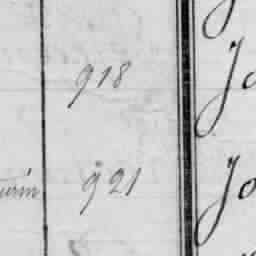 918 Jo
urin 921 Jo